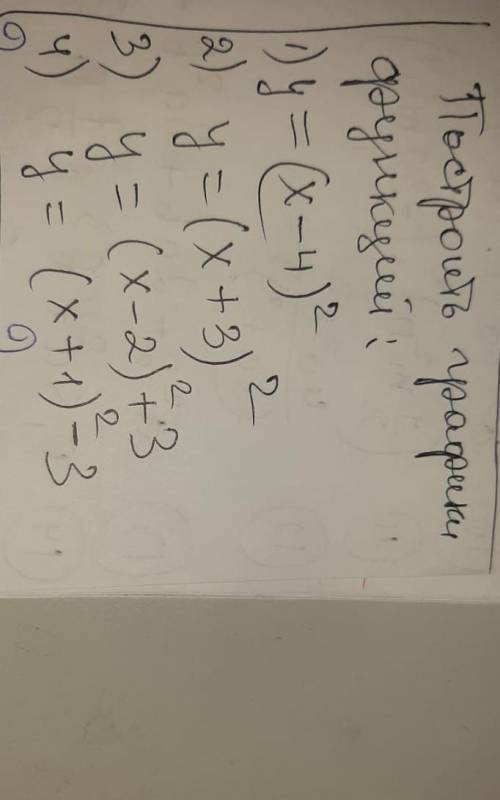 Построить графики
функций:
1) y = (x-4)²
2) y = (x+3)²
3) y = (x-2)²+3
4) y = (x+1)²-3